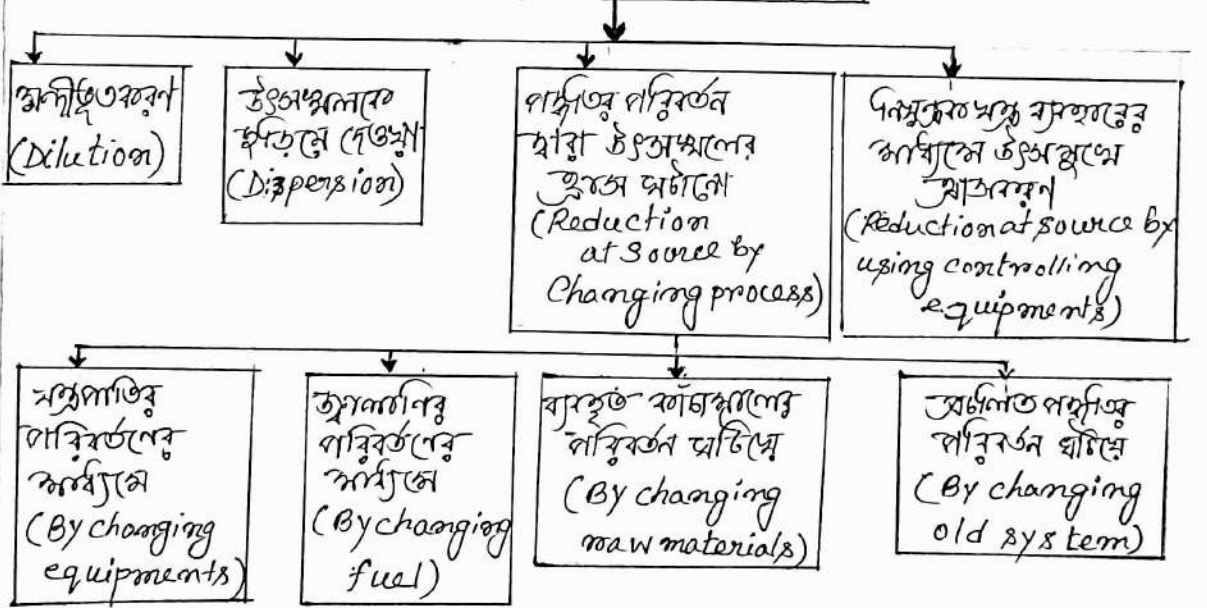 মন্দীভূতকরণ
(Dilution)
উৎসস্থলকে
ছড়িয়ে দেওয়া
(Dispersion)
পদ্ধতির পরিবর্তন
দ্বারা উৎসস্থলের
হ্রাস ঘটানো
(Reduction
at source by
Changing process)
যন্ত্র ব্যবহারের
মাধ্যমে উৎসমুখে
(Reduction at source by
using controlling
equipments)
যন্ত্রপাতির
পরিবর্তনের
মাধ্যমে
(By changing
equipments)
জ্বালানির
পরিবর্তনের
মাধ্যমে
(By changing
fuel)
ব্যবহৃত কাঁচামালের
পরিবর্তন ঘটিয়ে
(By changing
raw materials)
প্রচলিত পদ্ধতির
পরিবর্তন ঘটিয়ে
(By changing
old system)